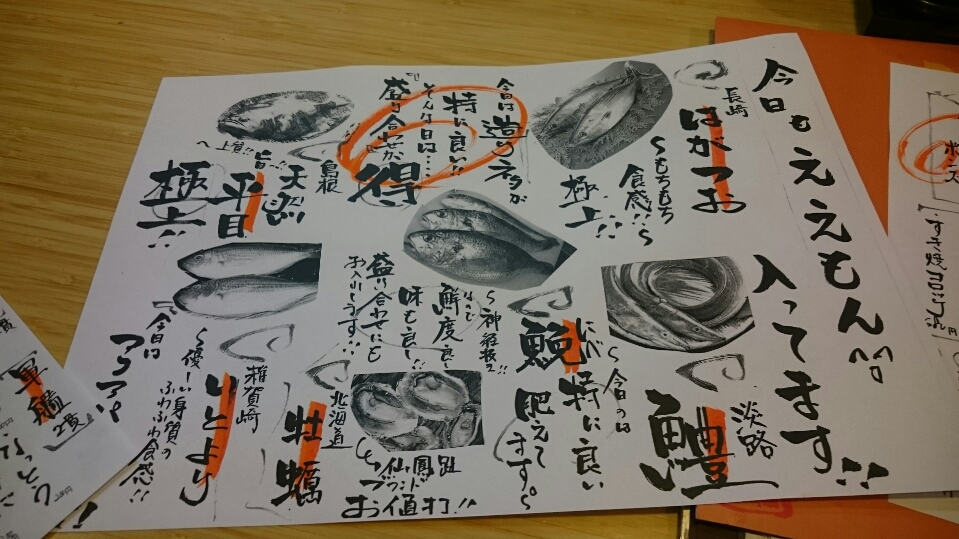 今日もええもん
入ってます!!
長崎
はがつお
〜もちもち
食感!!〜
極上!!
今日は造りネタが
特に良い!!
そんな日は…
盛り合わせが
得
島根
天然
平目
極上!!
淡路
鱧
〜今日のは
特に良い
肥えて
ます。〜
鮮度良し
味も良し!!
盛り合わせにも
お入れします!!
北海道
牡蠣
仙鳳趾
ブランド
お値打!!
雑賀崎
いとより
〜優しい身質の
ふわふわ食感!!
『今日は
軍艦
2貫
なっとう
ポン
すき焼